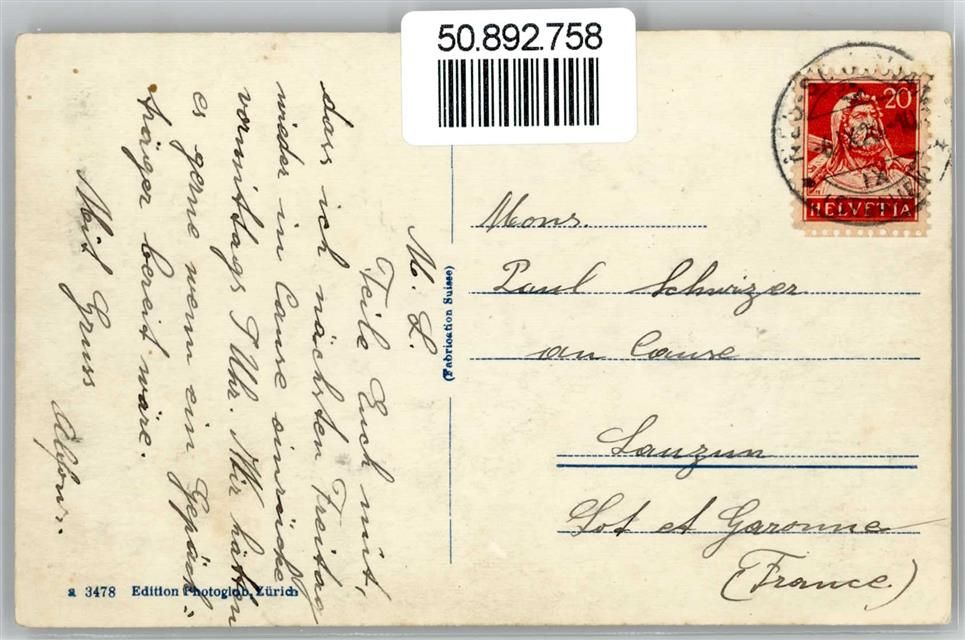 50.892.758
20
HELVETIA
M. L.
Teile Euch mit,
dass ich nächsten Freitag
wieder in Cause einrücke
vormittags 9 Uhr. Mir hätten
es gerne wenn ein Gepäck=
träger bereit wäre.
Mit Gruss
Alfons.
(Fabrication Suisse)
Mons.
Paul Schwizer
au Cause
Lauzun
Lot et Garonne
(France)
a 3478 Edition Photoglob, Zürich